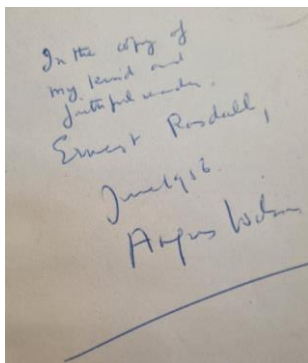 In the copy of
my kind and
faithful reader.
Ernest Rosdall,
June
Angus Wilson